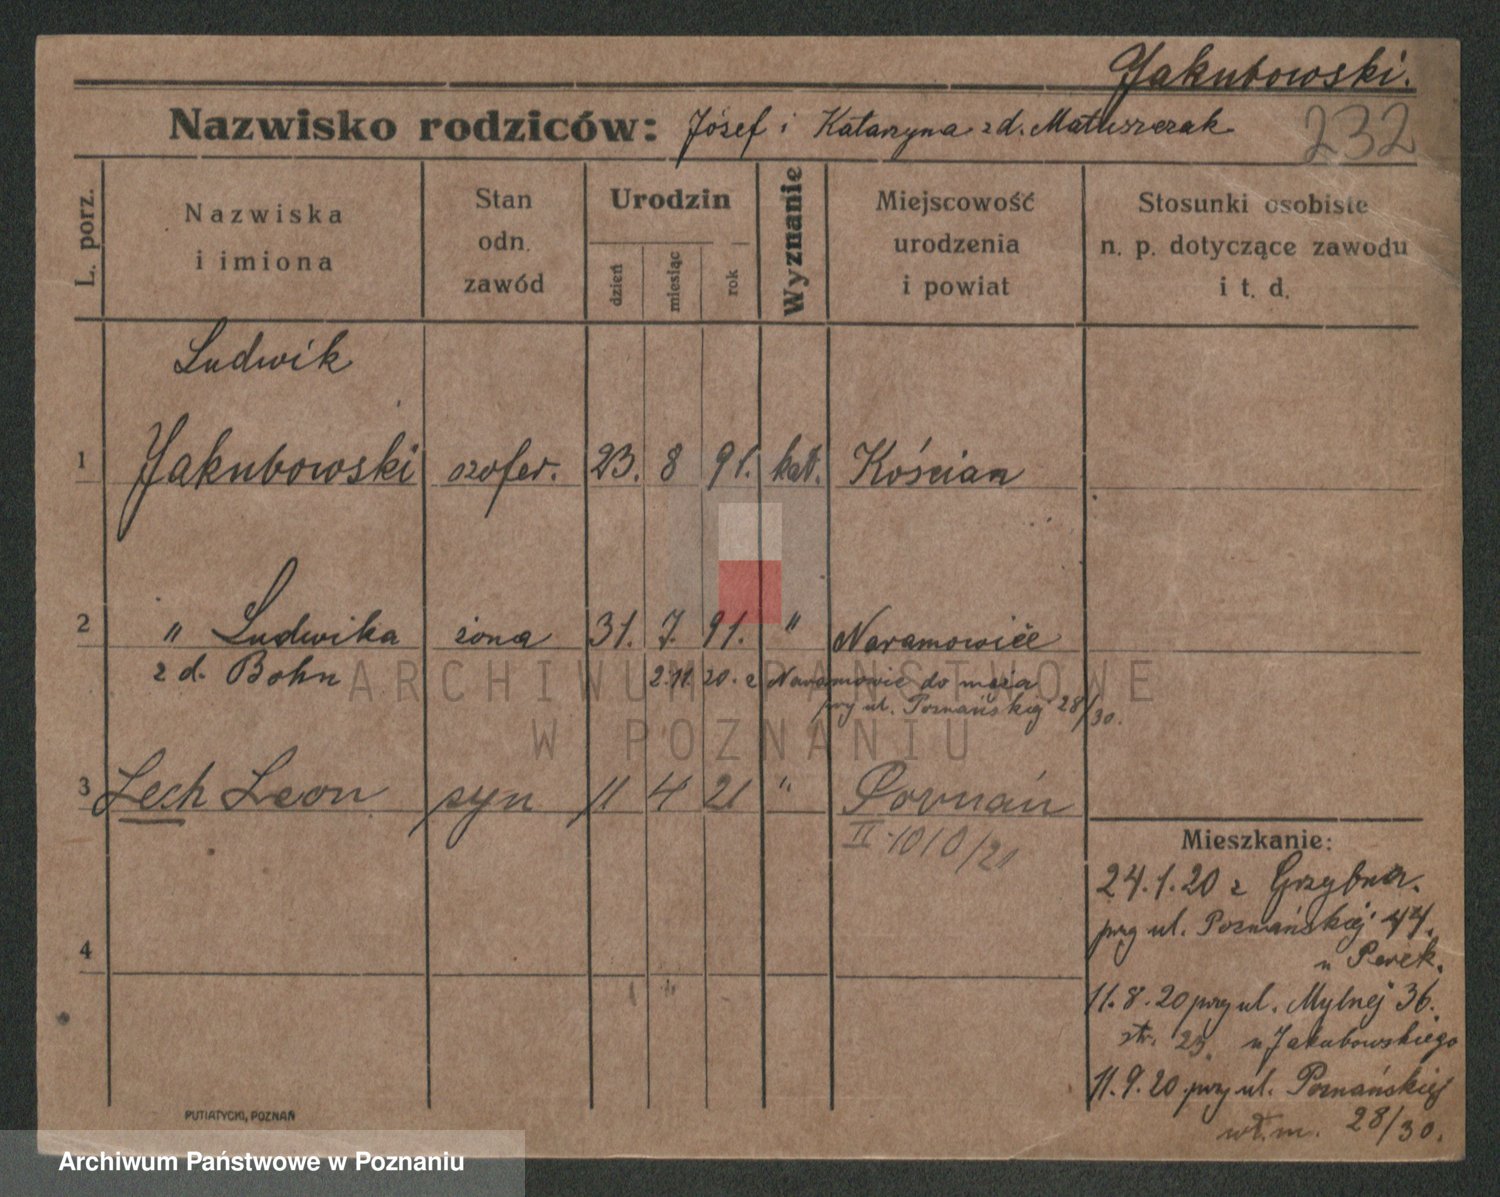 Jakubowski.
Nazwisko rodziców: Józef i Katarzyna z d. Matuszczak
232
L. porz.
Nazwiska
i imiona
Stan
odn.
zawód
Urodzin
dzień
miesiąc
rok
Wyznanie
Miejscowość
urodzenia
i powiat
Stosunki osobiste
n. p. dotyczące zawodu
i t. d.
Ludwik
1 Jakubowski szofer. 23. 8 91. kat. Kościan
2 " Ludwika żona 31. 7. 91. " Naramowice
z d. Bohn 2.11. 20. z Naramowic do męża
przy ul. Poznańskiej 28/30.
3 Lech Leon syn 11 4 21 " Poznań
II-1010/21
4
Mieszkanie:
24.1.20 z
przy ul. Poznańskiej 44.
u
11.8.20 przy ul. Mylnej 36.
str. 23. u Jakubowskiego
11.9.20 przy ul. Poznańskiej
wł. m. 28/30.
PUTIATYCKI, POZNAŃ
ARCHIWUM PAŃSTWOWE
W POZNANIU
Archiwum Państwowe w Poznaniu